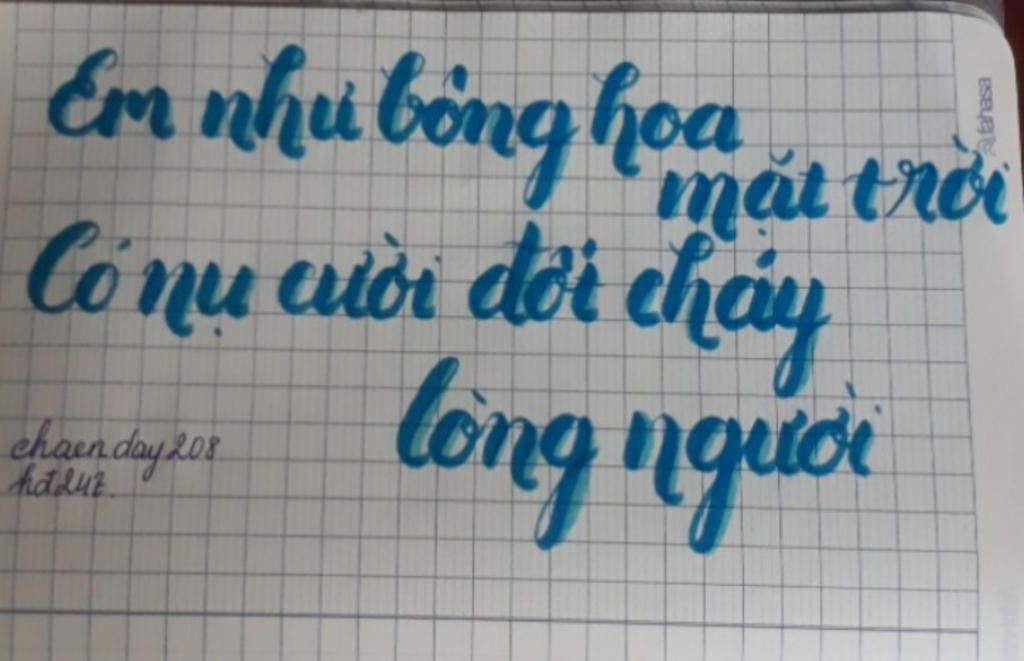 Em như bông hoa
mặt trời
Có nụ cười đôi cháy
lòng người
chaenday208
hđ247.
fahasa